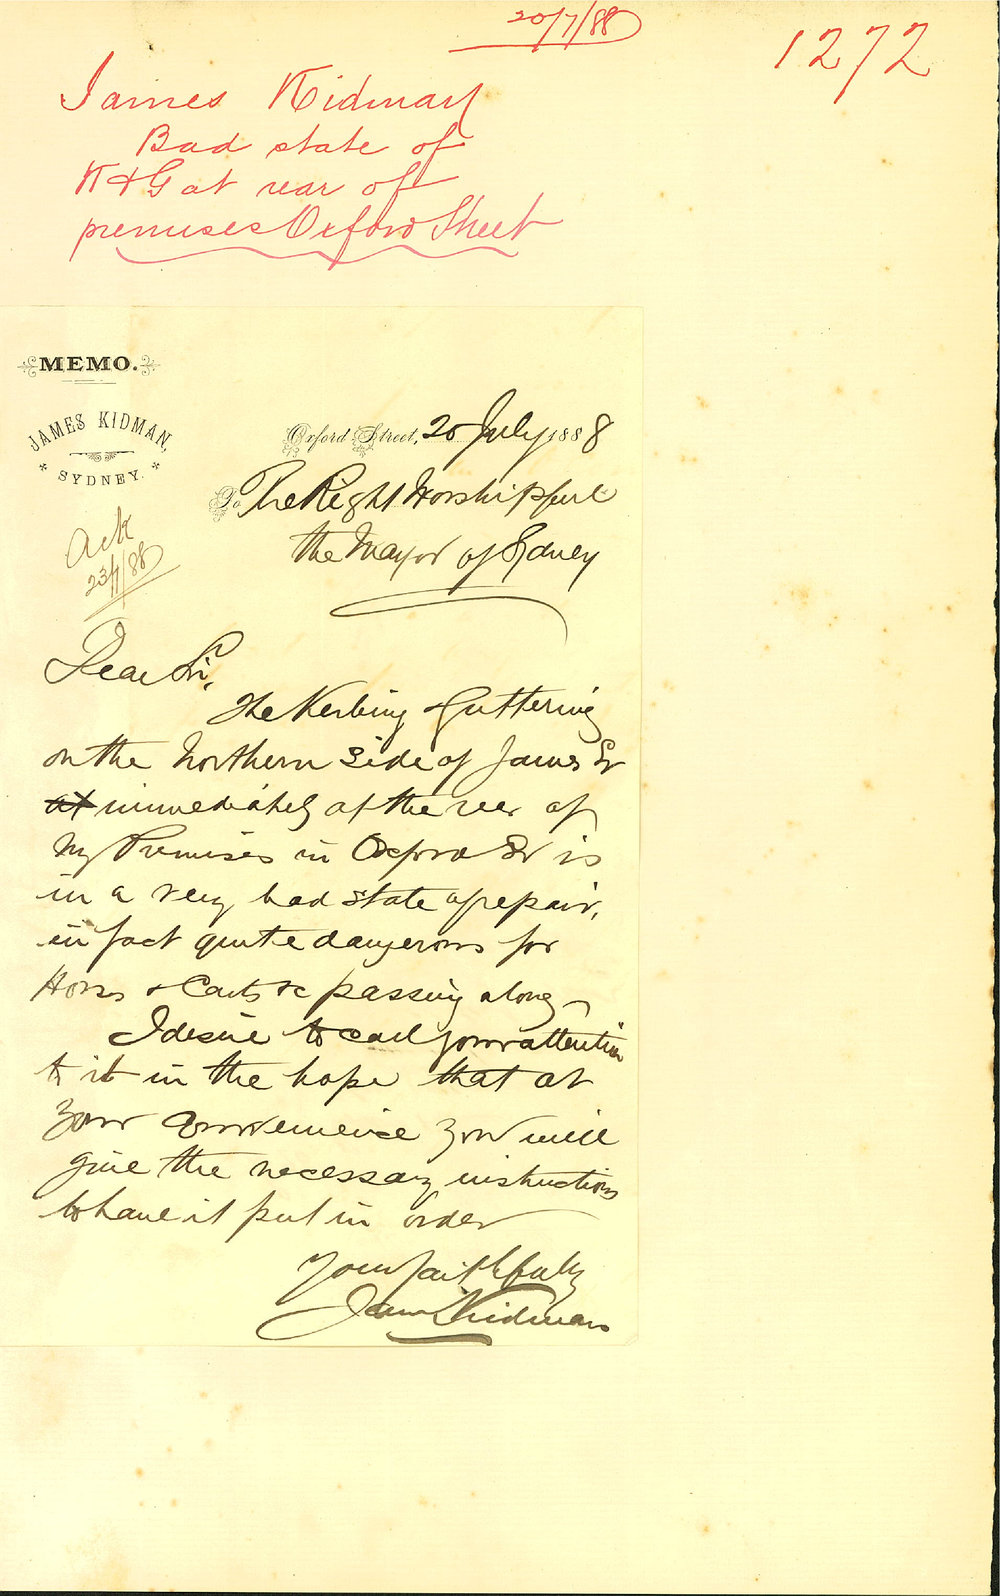 20/7/88
1272
James Kidman
Bad state of
K & G at rear of
premises Oxford Street
MEMO.
JAMES KIDMAN,
SYDNEY.
Oxford Street, 20 July 1888
To The Right Worshipfull
the Mayor of Sydney
Ack
23/7/88
Dear Sir,
The Kerbing & Guttering
on the Northern side of James St
at immediately at the rear of
My Premises in Oxford St is
in a very bad state of repair,
in fact quite dangerous for
Horses & Carts &c passing along
I desire to call your attention
to it in the hope that at
your convenience you will
give the necessary instructions
to have it put in order
Yours faithfully
James Kidman